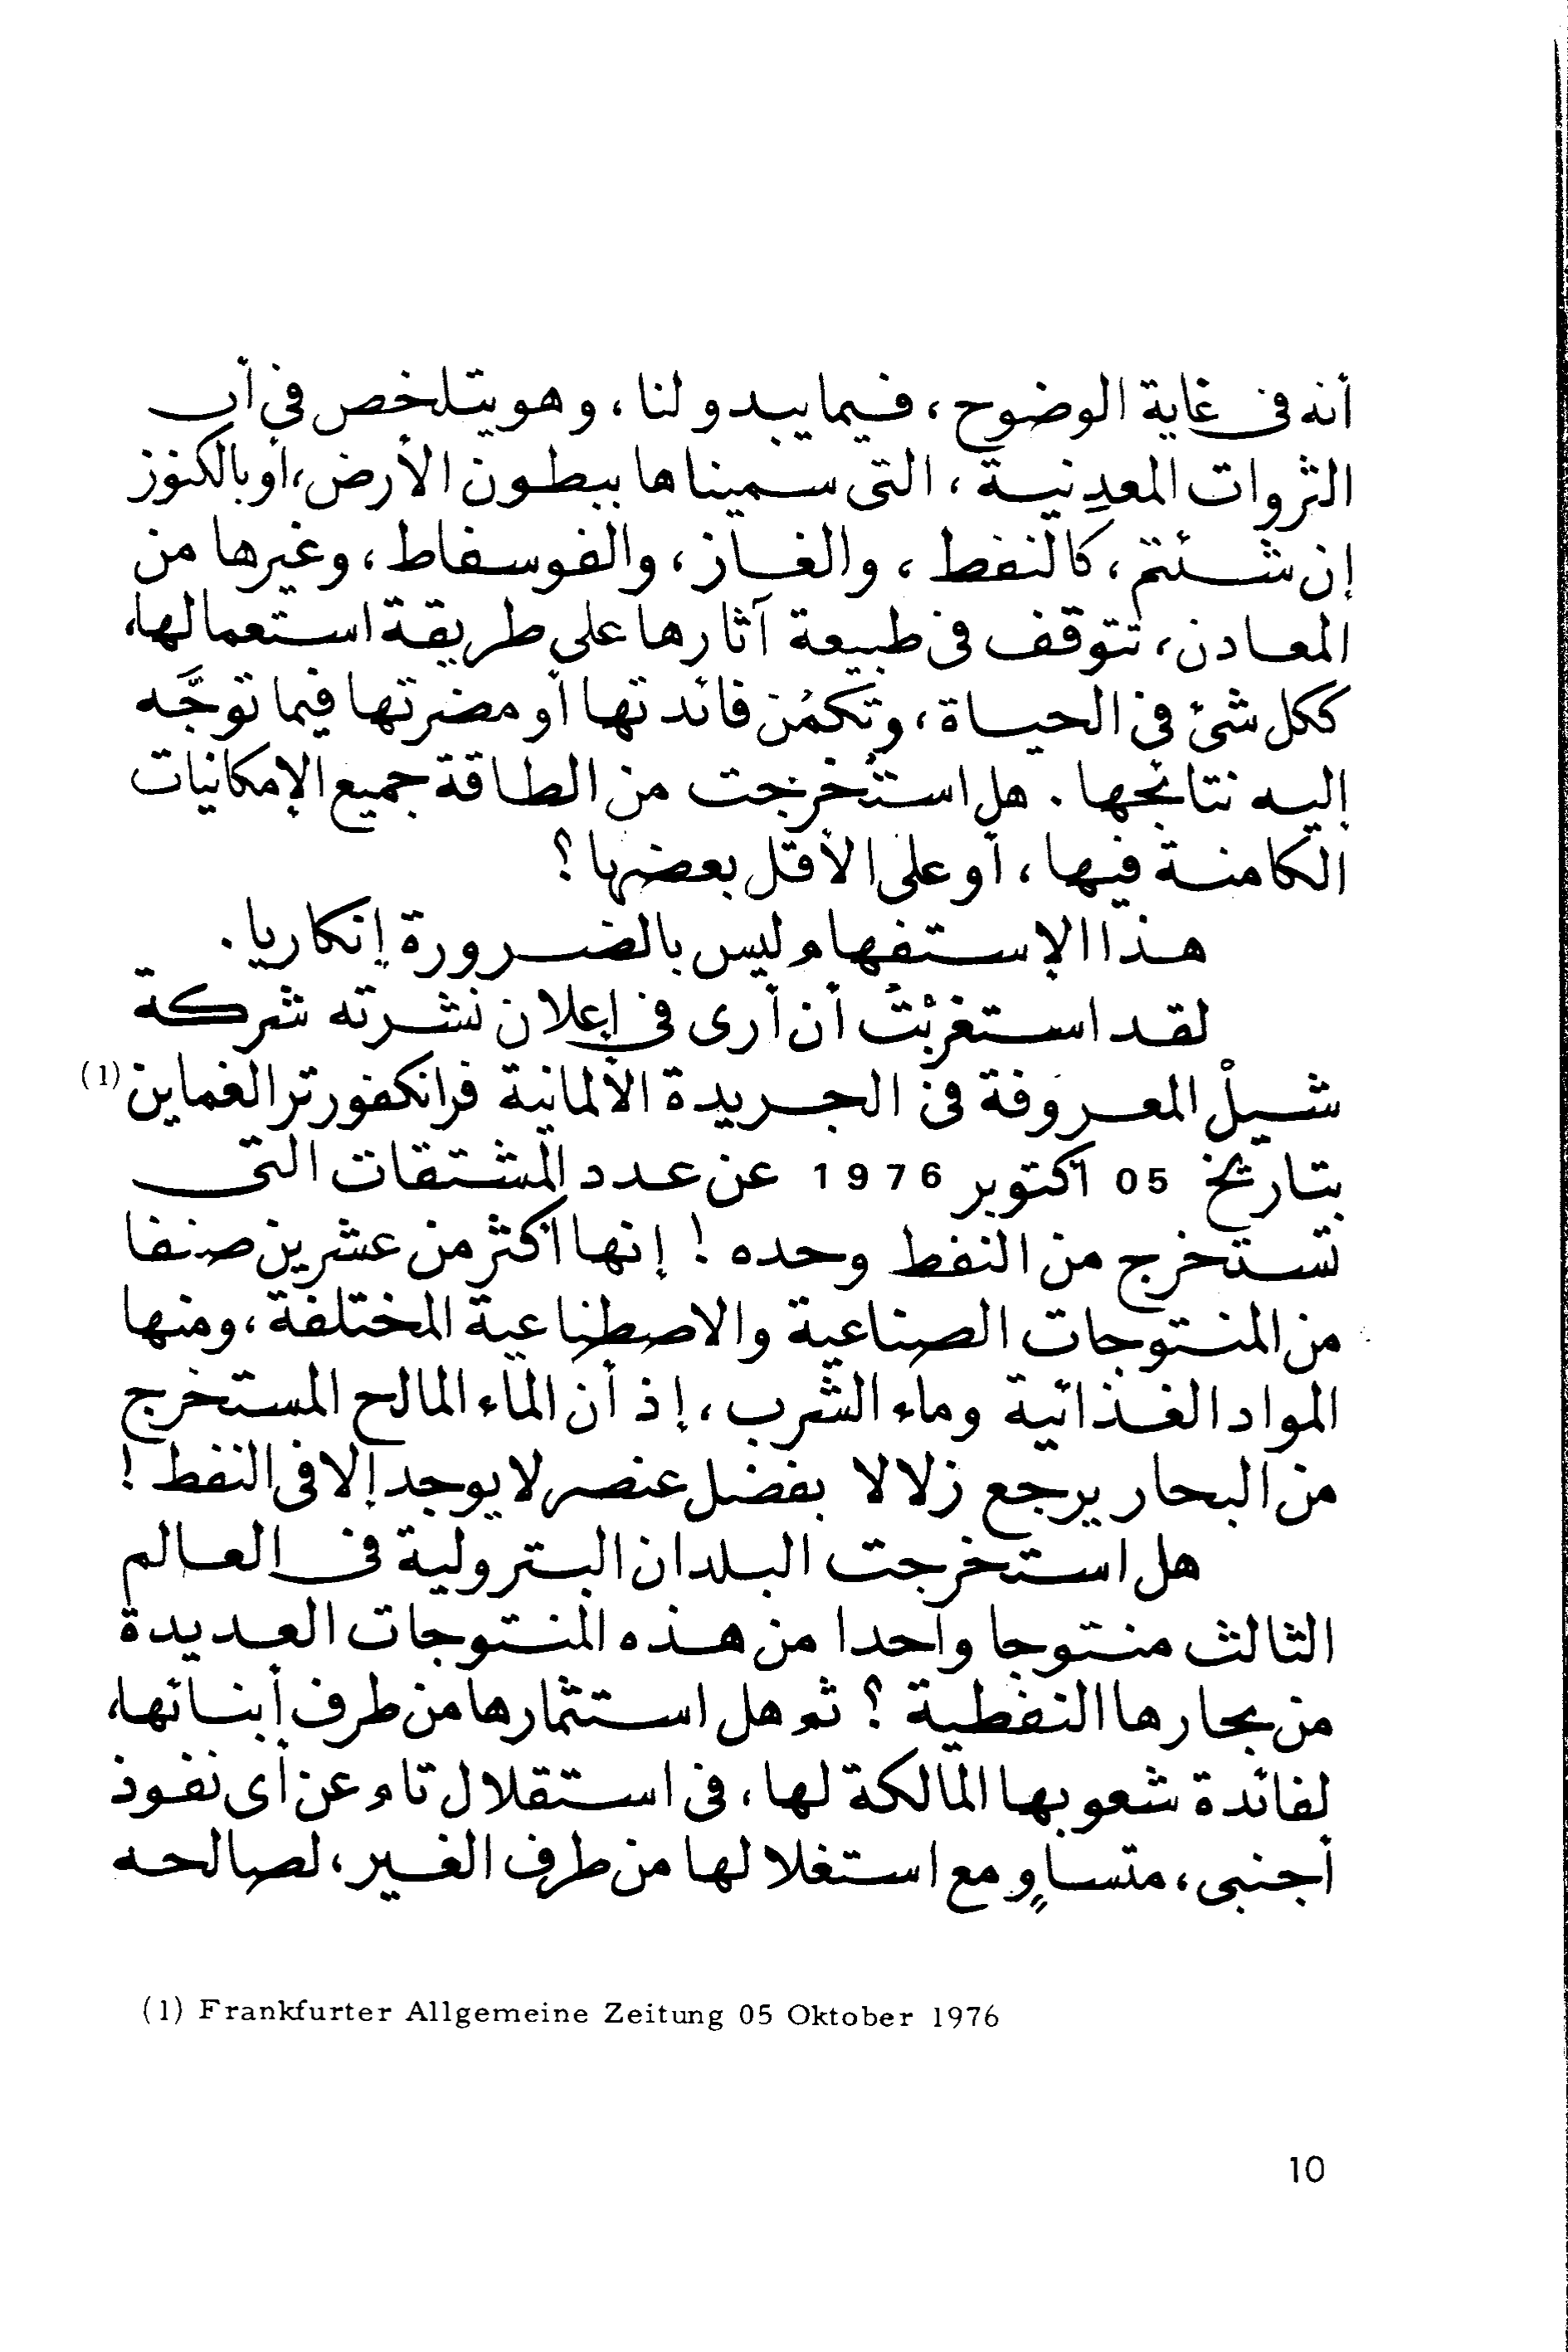 أنه فى غاية الوضوح ، فيما يبدو لنا ، وهو يتلخص في أن
الثروات المعدِنية ، التى سميناها ببطون الأرض ، أو بالكنوز
إن شئتم ، كالنفط ، والغاز ، والفوسفاط ، وغيرها من
المعادن ، تتوقف فى طبيعة آثارها على طريقة استعمالها ،
ككل شئ في الحياة ، وتكمُن فائدتها أو مضرتها فيما توجَّه
إليه نتائجها . هل استُخرجت من الطاقة جميع الإمكانيات
الكامنة فيها ، أو على الأقل بعضها ؟
هذا الإستفهام ليس بالضرورة إنكاريا .
لقد استغربْتُ أن أرى في إعلان نشرته شركة
شيلْ المعروفة فى الجريدة الألمانية فرانكفورتر الغماين (1)
بتاريخ 05 أكتوبر 1976 عن عدد المشتقات التى
تستخرج من النفط وحده ! إنها أكثر من عشرين صنفا
من المنتوجات الصناعية والاصطناعية المختلفة ، ومنها
المواد الغذائية وماء الشرب ، إذ أن الماء المالح المستخرج
من البحار يرجع زلالا بفضل عنصر لا يوجد إلا فى النفط !
هل استخرجت البلدان البترولية فى العالم
الثالث منتوجا واحدا من هذه المنتوجات العديدة
من بحارها النفطية ؟ ثم هل استثمارها من طرف أبنائها ،
لفائدة شعوبها المالكة لها ، في استقلال تام عن أى نفوذ
أجنبى ، متساوٍ مع استغلالها من طرف الغير ، لصالحه
(1) Frankfurter Allgemeine Zeitung 05 Oktober 1976
10